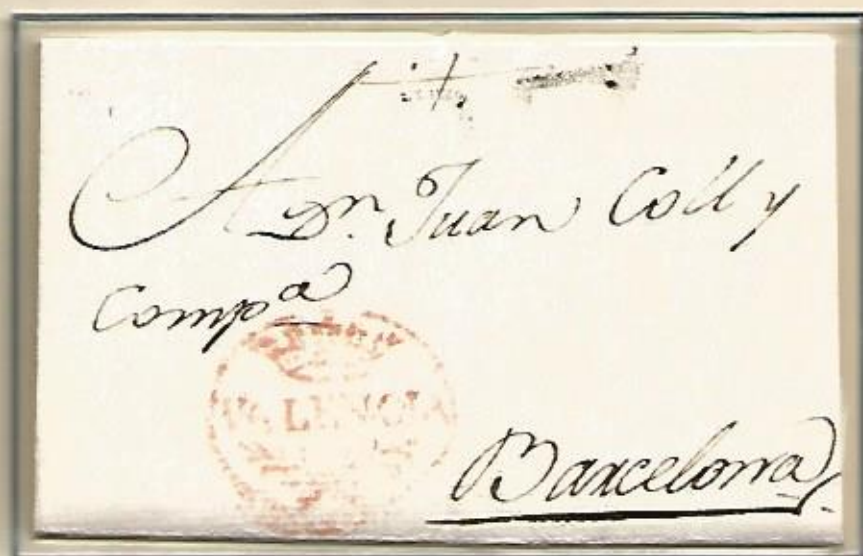 A Dn. Juan Coll y
Compa
VALENCIA
Barcelona